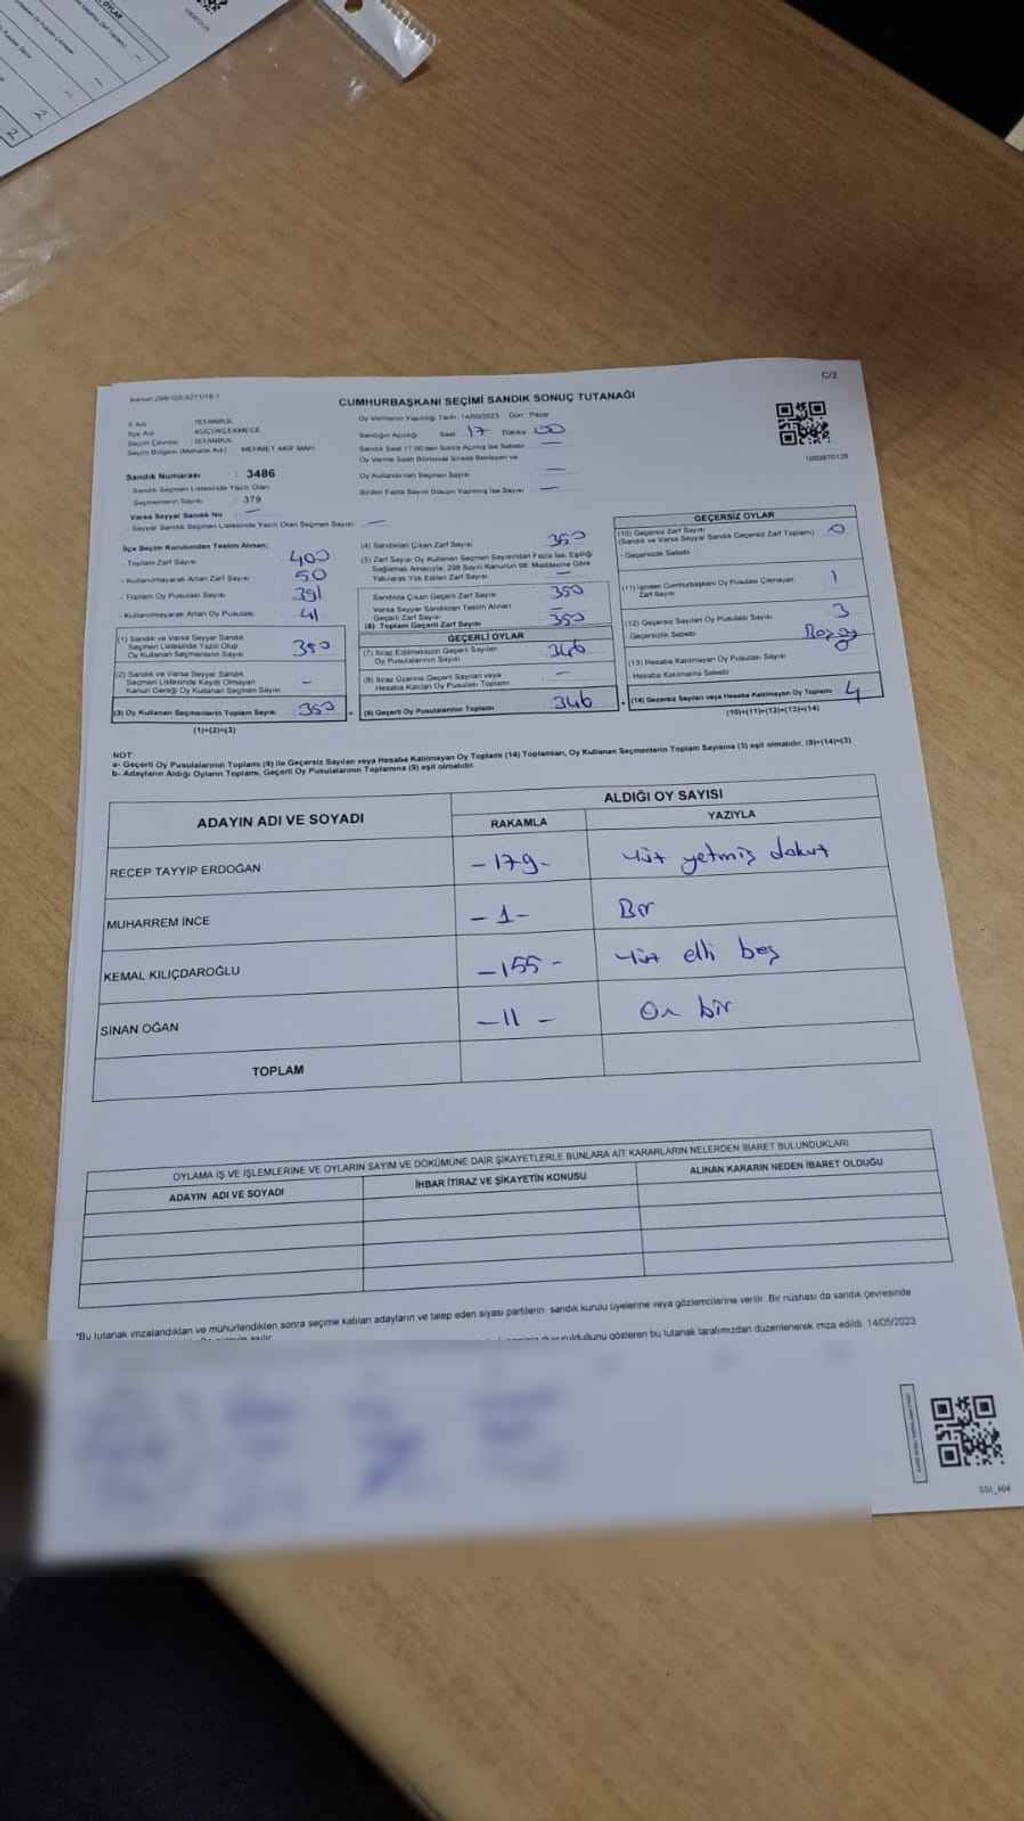 C/2
CUMHURBAŞKANI SEÇİMİ SANDIK SONUÇ TUTANAĞI
İSTANBUL
KÜÇÜKÇEKMECE
İSTANBUL
Seçim Bölgesi (Mahalle Adı) : MEHMET AKİF MAH.
Oy Vermenin Yapıldığı Tarih : 14/05/2023 Gün : Pazar
Sandığın Açıldığı Saat 17 Dakika 00
Sandık Numarası : 3486
Sandık Seçmen Listesinde Yazılı Olan
Seçmenlerin Sayısı : 379
Varsa Seyyar Sandık No —
Seyyar Sandık Seçmen Listesinde Yazılı Olan Seçmen Sayısı —
Oy Kullandırılan Seçmen Sayısı —
Birden Fazla Sayım Döküm Yapılmış İse Sayısı —
İlçe Seçim Kurulundan Teslim Alınan;
- Toplam Zarf Sayısı 400
- Kullanılmayarak Artan Zarf Sayısı 50
- Toplam Oy Pusulası Sayısı 391
- Kullanılmayarak Artan Oy Pusulası 41
(1) Sandık ve Varsa Seyyar Sandık
Seçmen Listesinde Yazılı Olup
Oy Kullanan Seçmenlerin Sayısı 350
(2) Sandık ve Varsa Seyyar Sandık
Seçmen Listesinde Kayıtlı Olmayan
Kanun Gereği Oy Kullanan Seçmen Sayısı -
(3) Oy Kullanan Seçmenlerin Toplam Sayısı 350
(1)+(2)=(3)
(4) Sandıktan Çıkan Zarf Sayısı 350
(5) Zarf Sayısı Oy Kullanan Seçmen Sayısından Fazla İse, Eşitliği
Sağlamak Amacıyla, 298 Sayılı Kanunun 98. Maddesine Göre
Yakılarak Yok Edilen Zarf Sayısı —
Sandıkta Çıkan Geçerli Zarf Sayısı 350
Varsa Seyyar Sandıktan Teslim Alınan
Geçerli Zarf Sayısı —
(6) Toplam Geçerli Zarf Sayısı 350
GEÇERLİ OYLAR
(7) İtiraz Edilmeksizin Geçerli Sayılan
Oy Pusulalarının Sayısı 346
(8) İtiraz Üzerine Geçerli Sayılan veya
Hesaba Katılan Oy Pusulası Toplamı —
(9) Geçerli Oy Pusulalarının Toplamı 346
GEÇERSİZ OYLAR
(10) Geçersiz Zarf Sayısı
(Sandık ve Varsa Seyyar Sandık Geçersiz Zarf Toplamı) 0
- Geçersizlik Sebebi
(11) İçinden Cumhurbaşkanı Oy Pusulası Çıkmayan
Zarf Sayısı 1
(12) Geçersiz Sayılan Oy Pusulası Sayısı 3
Geçersizlik Sebebi
(13) Hesaba Katılmayan Oy Pusulası Sayısı
Hesaba Katılmama Sebebi
(14) Geçersiz Sayılan veya Hesaba Katılmayan Oy Toplamı 4
(10)+(11)+(12)+(13)=(14)
NOT:
a- Geçerli Oy Pusulalarının Toplamı (9) ile Geçersiz Sayılan veya Hesaba Katılmayan Oy Toplamı (14) Toplamları, Oy Kullanan Seçmenlerin Toplam Sayısına (3) eşit olmalıdır. (9)+(14)=(3)
b- Adayların Aldığı Oyların Toplamı, Geçerli Oy Pusulalarının Toplamına (9) eşit olmalıdır.
ADAYIN ADI VE SOYADI
ALDIĞI OY SAYISI
RAKAMLA YAZIYLA
RECEP TAYYIP ERDOĞAN -179- Yüz yetmiş dokuz
MUHARREM İNCE -1- Bir
KEMAL KILIÇDAROĞLU -155- Yüz elli beş
SİNAN OĞAN -11- On bir
TOPLAM
OYLAMA İŞ VE İŞLEMLERİNE VE OYLARIN SAYIM VE DÖKÜMÜNE DAİR ŞİKAYETLERLE BUNLARA AİT KARARLARIN NELERDEN İBARET BULUNDUKLARI
ADAYIN ADI VE SOYADI İHBAR İTİRAZ VE ŞİKAYETİN KONUSU ALINAN KARARIN NEDEN İBARET OLDUĞU
"Bu tutanak imzalandıktan ve mühürlendikten sonra seçime katılan adayların ve talep eden siyasi partilerin sandık kurulu üyelerine veya gözlemcilerine verilir. Bir nüshası da sandık çevresinde
gösteren bu tutanak tarafımızdan düzenlenerek imza edildi. 14/05/2023